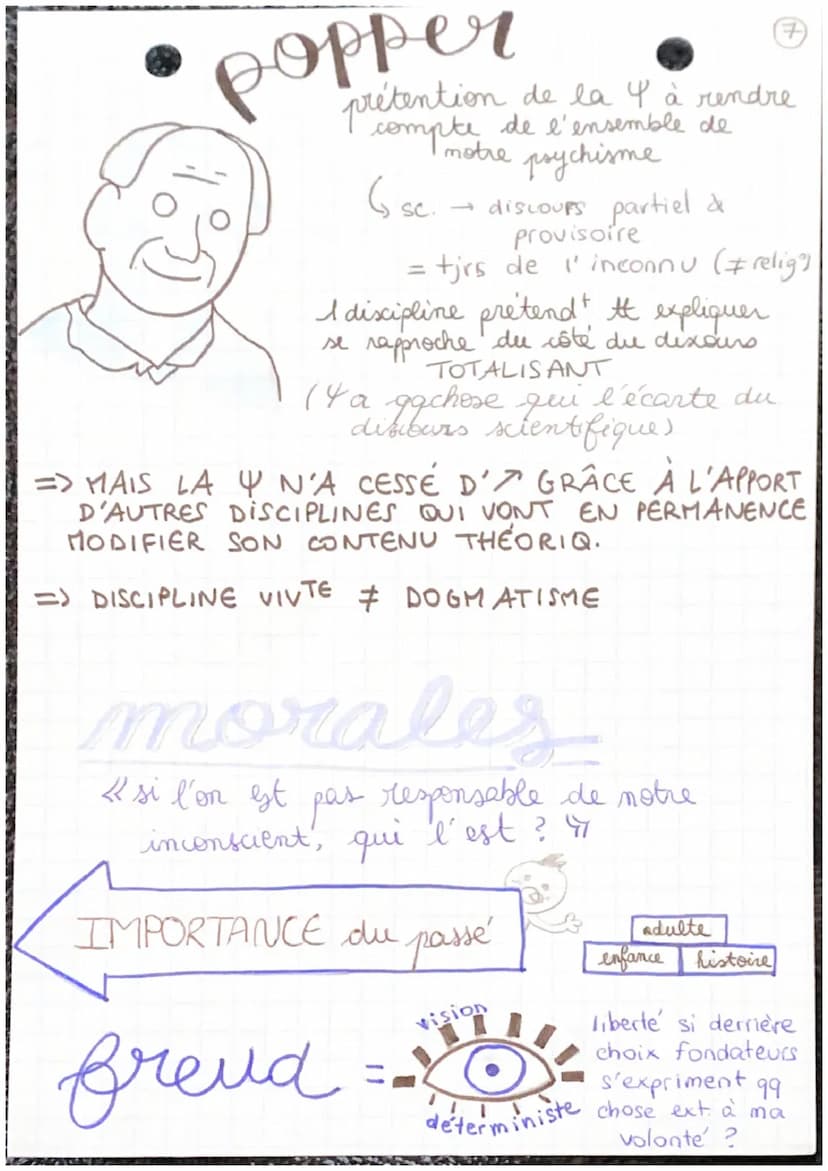 7
popper
prétention de la Ψ à rendre
compte de l'ensemble de
notre psychisme
↳ sc. → discours partiel &
provisoire
= tjrs de l'inconnu (≠ relig°)
1 discipline prétendt tt expliquer
se rapproche du côté du discours
TOTALISANT
(Ψ a qqchose qui l'écarte du
discours scientifique)
=> MAIS LA Ψ N'A CESSÉ D'↗ GRÂCE À L'APPORT
D'AUTRES DISCIPLINES QUI VONT EN PERMANENCE
MODIFIER SON CONTENU THÉORIQ.
=> DISCIPLINE VIVTE ≠ DOGMATISME
morales
« si l'on est pas responsable de notre
inconscient, qui l'est ? »
IMPORTANCE du passé
adulte
enfance histoire
freud =
vision
déterministe
liberté si derrière
choix fondateurs
s'expriment qq
chose ext. à ma
volonté ?